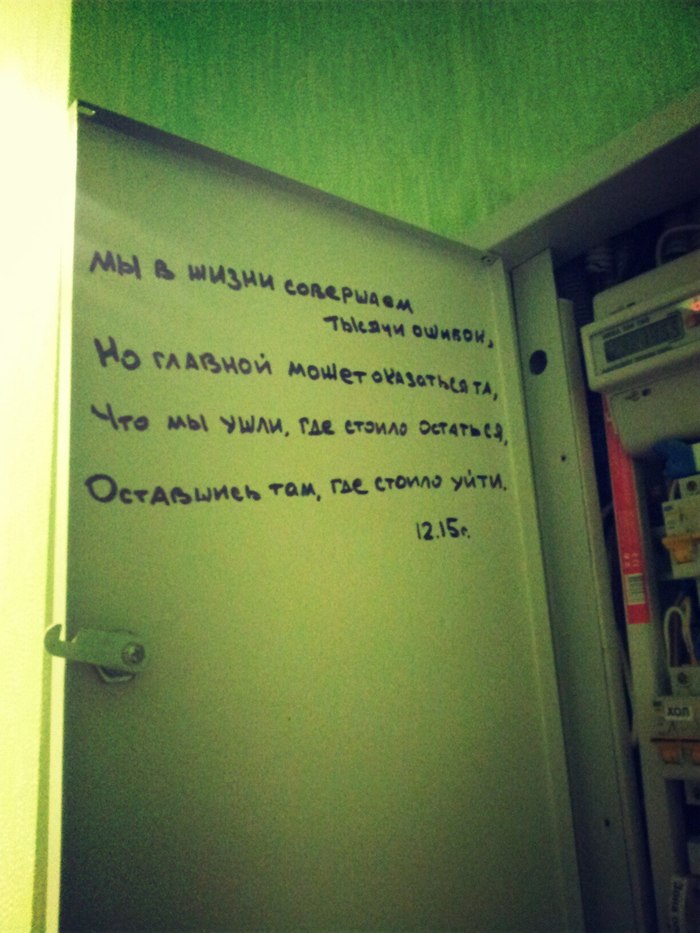 Мы в жизни совершаем
тысячи ошибок,
Но главной может оказаться та,
Что мы ушли, где стоило остаться,
Оставшись там, где стоило уйти.
12.15г.
ХОЛ